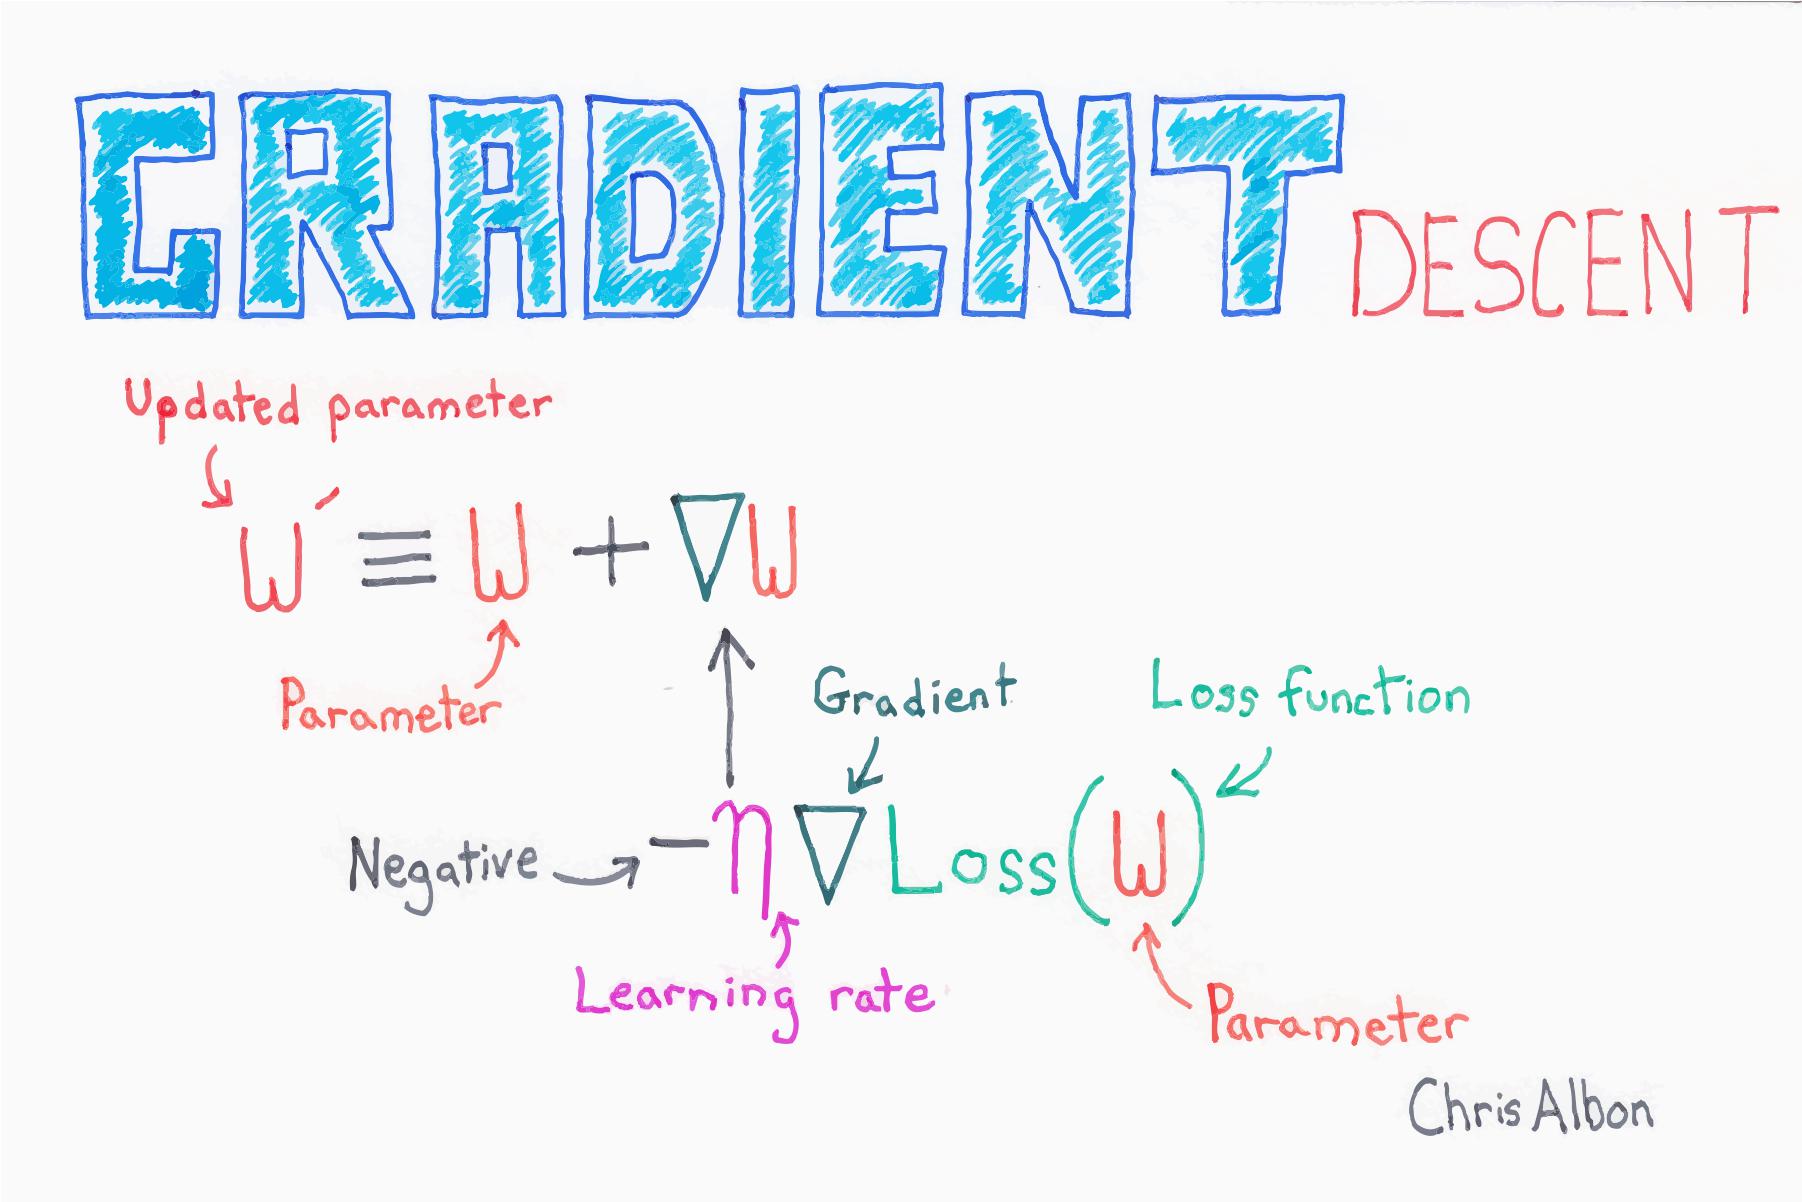 GRADIENT DESCENT
Updated parameter
w′ ≡ w + ∇w
Parameter
Gradient
Loss function
Negative
-η∇Loss(w)
Learning rate
Parameter
Chris Albon